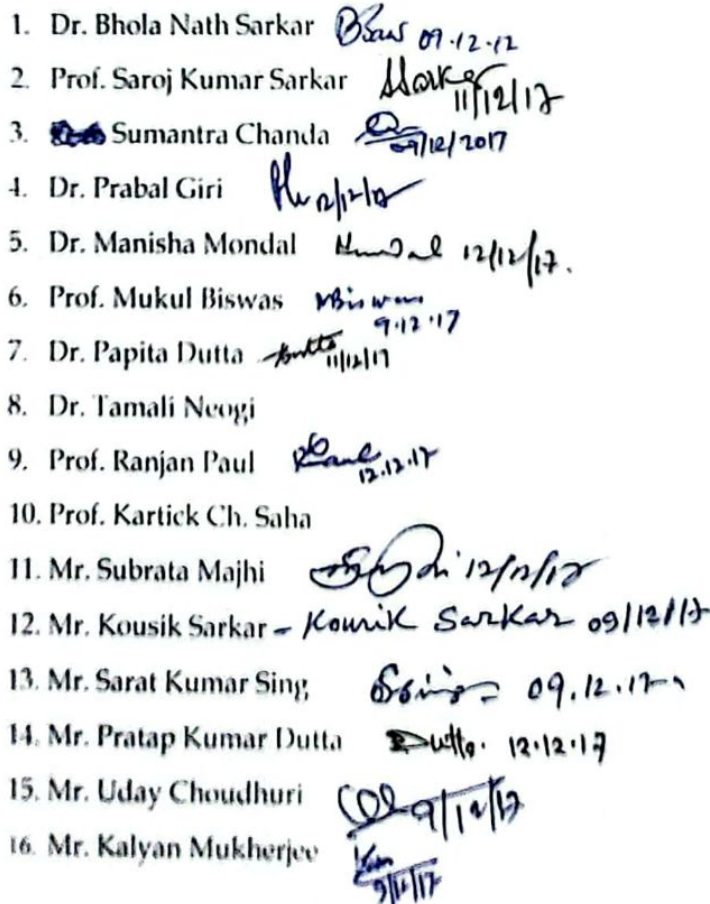 1. Dr. Bhola Nath Sarkar 09.12.12
2. Prof. Saroj Kumar Sarkar 11/12/17
3. Sumantra Chanda 09/12/2017
4. Dr. Prabal Giri
5. Dr. Manisha Mondal 12/12/17.
6. Prof. Mukul Biswas MBiswas
9.12.17
7. Dr. Papita Dutta Dutta 11/12/17
8. Dr. Tamali Neogi
9. Prof. Ranjan Paul RPaul
12.12.17
10. Prof. Kartick Ch. Saha
11. Mr. Subrata Majhi 12/12/17
12. Mr. Kousik Sarkar - Kousik Sarkar 09/12/17
13. Mr. Sarat Kumar Sing 09.12.17
14. Mr. Pratap Kumar Dutta Dutta. 12.12.17
15. Mr. Uday Choudhuri 9/12/17
16. Mr. Kalyan Mukherjee
9/12/17